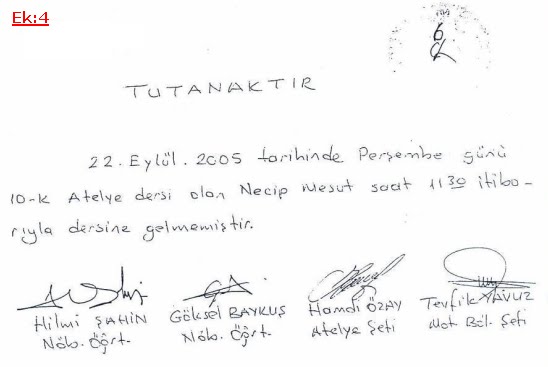 Ek:4
6
TUTANAKTIR
22. Eylül. 2005 tarihinde Perşembe günü
10-K Atelye dersi olan Necip Mesut saat 11 30 itiba-
rıyla dersine gelmemiştir.
Hilmi ŞAHİN Göksel BAYKUŞ Hamdi ÖZAY Tevfik YAVUZ
Nöb. Öğrt. Nöb. Öğrt. Atelye Şefi Mot. Böl. Şefi